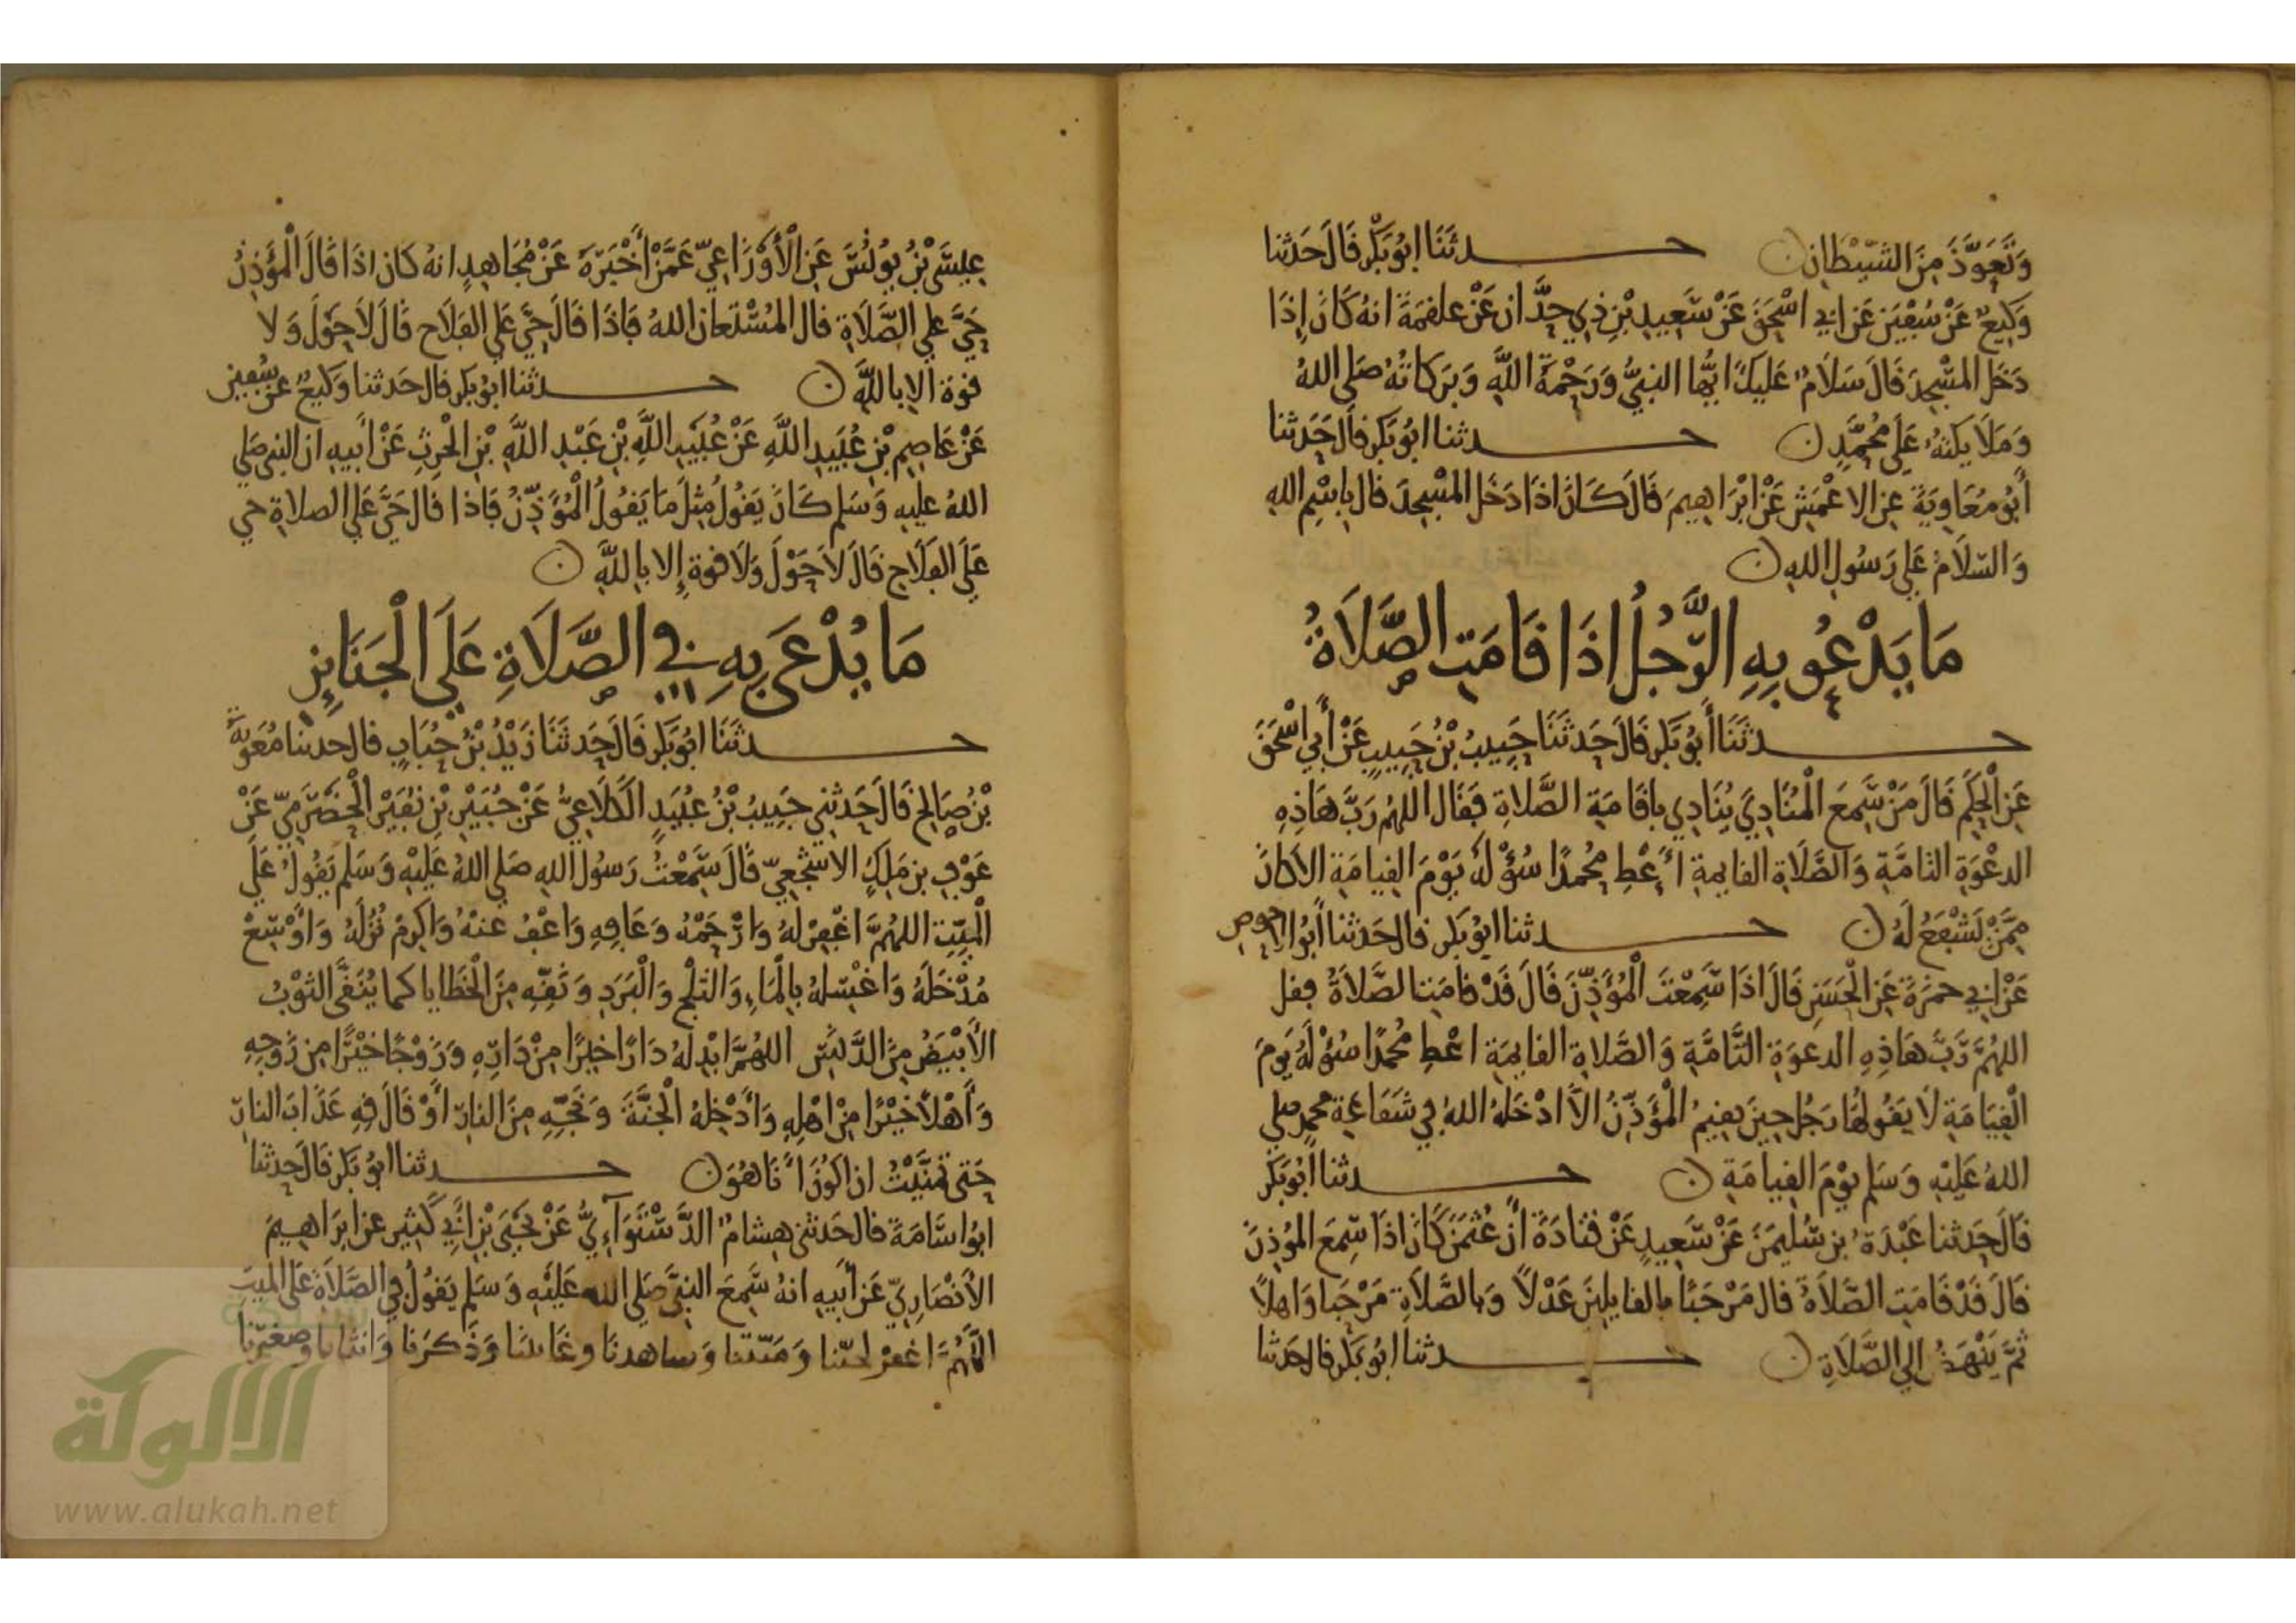 وَتَعَوَّذَ مِنَ الشَّيْطَانِ ن حـــدثَنَا ابُو بَكْرٍ قَالَ حَدَثنا
وَكِيعٌ عَنْ سُفْيَنَ عَنْ ابي اسْحَقَ عَنْ سَعِيدِ بْنِ ذِي حِدَّان عَنْ علقمَةَ انهُ كَانَ إِذَا
دَخَلَ المسْجِدَ قَالَ سَلَامٌ عَلَيكَ ايُّها النبيُّ وَرَحْمَةُ اللَّهِ وَبَرَكَاتهُ صَلى اللهُ
وَمَلَايكتهُ عَلَى مُحَمَّدٍ ن حـــدثنا ابُو بَكرٍ قالَ حَدثنا
أبُو مُعَاوِيَةَ عن الاعْمَشِ عَنْ ابْرَاهِيمَ قَالَ كَانَ اذَا دَخَلَ المسْجِدَ قال بِاسْمِ اللهِ
وَالسّلَامُ عَلى رَسُولِ اللهِ ن
مَا يَدْعُو بِهِ الرَّجُلُ اذَا قَامَتِ الصَّلَاةُ
حـــدثَنَا أَبُو بَكْرٍ قَالَ حَدثَنَا حَبِيبُ بْنُ حَبِيبٍ عَنْ أَبي اسْحَقَ
عَنِ الْحَكَمِ قَالَ مَنْ سَمِعَ الْمُنَادِيَ يُنَادِي باقَامَةِ الصَّلاةِ فَقَال اللهُم رَبَّ هَاذِهِ
الدعْوَةِ التامَّةِ وَالصَّلَاةِ القايمةِ أعْطِ مُحمدًا سُؤْلَهُ يَوْمَ القِيامَةِ الا كانَ
مِمَّنْ يَشْفَعُ لَهُ ن حـــدثنا ابُو بَكرٍ قالَ حَدثنا أَبُو الاحوصِ
عَنْ ابي حمزَةَ عَنِ الْحَسَنِ قَالَ اذَا سَمِعْتَ الْمُؤَذِّنَ قَالَ قَدْ قامَتِ الصَّلَاةُ فقل
اللهُمَّ رَبَّ هَاذِهِ الدعوَةِ التَّامَّةِ وَالصَّلاةِ القايمَةِ اعْطِ مُحمدًا سُؤْلَهُ يَومَ
الْقِيَامَةِ لَا يَقُولهَا رَجُل حِينَ يقيمُ الْمُؤَذِّنُ الَّا ادْخَلَهُ اللهُ في شَفَاعَةِ محمدٍ صلى
اللهُ عَلَيْهِ وَسَلم يوْمَ القِيامَةِ ن حـــدثنا أَبُو بَكْرٍ
قَالَ حَدثنا عَبْدَةُ بن سُلَيمَنَ عَنْ سَعِيدٍ عَنْ قتادَةَ أَنَّ عُثمَنَ كَانَ اذَا سَمِعَ المُؤذِنَ
قَالَ قَدْ قَامَتِ الصَّلَاةُ قال مَرْحَبًا بالقايلِينَ عَدْلًا وَبالصَّلَاةِ مَرْحَبا وَاهلًا
ثُمَّ يَنْهَضُ الي الصَّلَاةِ ن حـــدثنا ابُو بَكْرٍ قالَ حَدثنا
عِيسَى بْنُ يُونُسَ عَنِ الْأَوْزَاعِيّ عَمَّنْ أَخْبَرَهُ عَنْ مُجَاهِدٍ انهُ كَان اذَا قَالَ الْمُؤَذِنُ
حَيَّ على الصَّلَاةِ قال المُسْتَعانُ اللهُ فَاذَا قَالَ حَيَّ عَلَى الفَلَاحِ قَالَ لَا حَوْلَ وَلا
قوة الا باللَّهِ ن حـــدثنا ابُو بَكرٍ قالَ حَدثنا وَكيعٌ عَنْ سُفين
عَنْ عَاصِمِ بْنِ عُبَيدِ اللَّهِ عَنْ عُبَيْدِ اللَّهِ بْنِ عَبْدِ اللَّهِ بْنِ الْحَرِثِ عَنْ أَبيهِ ان النبي صَلى
اللهُ عليهِ وَسَلم كَانَ يَقُولُ مِثْلَ مَا يَقُولُ الْمُؤَذِّنُ فَاذا قَالَ حَيَّ عَلَى الصلاةِ حي
عَلَى الفَلَاحِ قَالَ لَا حَوْلَ وَلَا قوة إلا بِاللَّهِ ن
مَا يُدْعَى بِهِ فِي الصَّلَاةِ عَلَى الْجَنَايِزِ
حـــدثَنَا ابُو بَكْرٍ قَالَ حَدثَنَا زَيْدُ بْنُ حُبَابٍ قالَ حدثنا مُعَوِيَةُ
بْنُ صَالِحٍ قَالَ حَدثني حَبِيبُ بْنُ عبَيدٍ الْكَلَاعِيُّ عَنْ جُبَيْرِ بْنِ نُفَيْرٍ الْحَضْرَمِيّ عَنْ
عَوْفِ بنِ مَلكٍ الاشْجعِيّ قَالَ سَمِعْتُ رَسُولَ اللهِ صَلى اللهُ عَلَيْهِ وَسَلم يَقُولُ عَلَى
الْمَيِّتِ اللهُمَّ اغْفِرْ لهُ وَارْحَمْهُ وَعَافِهِ وَاعْفُ عَنْهُ وَاكرِمْ نُزُلَهُ وَأَوْسِعْ
مُدْخَلَهُ وَاغْسِلهُ بِالْمَاءِ وَالثلْجِ وَالْبَرَدِ وَنَقِّهِ مِنَ الْخَطَايا كما يُنَقَّى الثوْبُ
الأَبْيَضُ مِنَ الدَّنَسِ اللهُمَّ ابْدِلْهُ دَارًا خيرًا مِنْ دَارِهِ وَزَوْجًا خَيْرًا مِن زَوْجِهِ
وَأَهْلًا خَيْرًا مِنْ اهْلِهِ وَأَدْخِلْهُ الْجَنَّةَ وَنَجِّهِ مِنَ النارِ أَوْ قَالَ قِهِ عَذَابَ النارِ
حَتى تَمَنَّيْتُ ان اكُونَ أَنَا هُوَ ن حـــدثنا ابُو بَكرٍ قَالَ حدثنا
ابُو اسَامَةَ قالَ حَدثني هِشَامٌ الدَّسْتَوَآءِيُّ عَنْ يَحْيَى بْنِ أَبي كَثِيرٍ عن ابرَاهِيمَ
الأَنْصَارِيّ عَنْ أَبيهِ انهُ سَمِعَ النبيَّ صَلى اللهُ عَلَيْهِ وَسَلم يَقُولُ في الصَّلَاةِ عَلَى المَيتِ
اللَّهُمَّ اغفرْ لحيّنا وَمَيّتنا وَشاهدنَا وغَائبنَا وَذَكرَنا وَانثانا وصغيرنَا
الألوكة
www.alukah.net